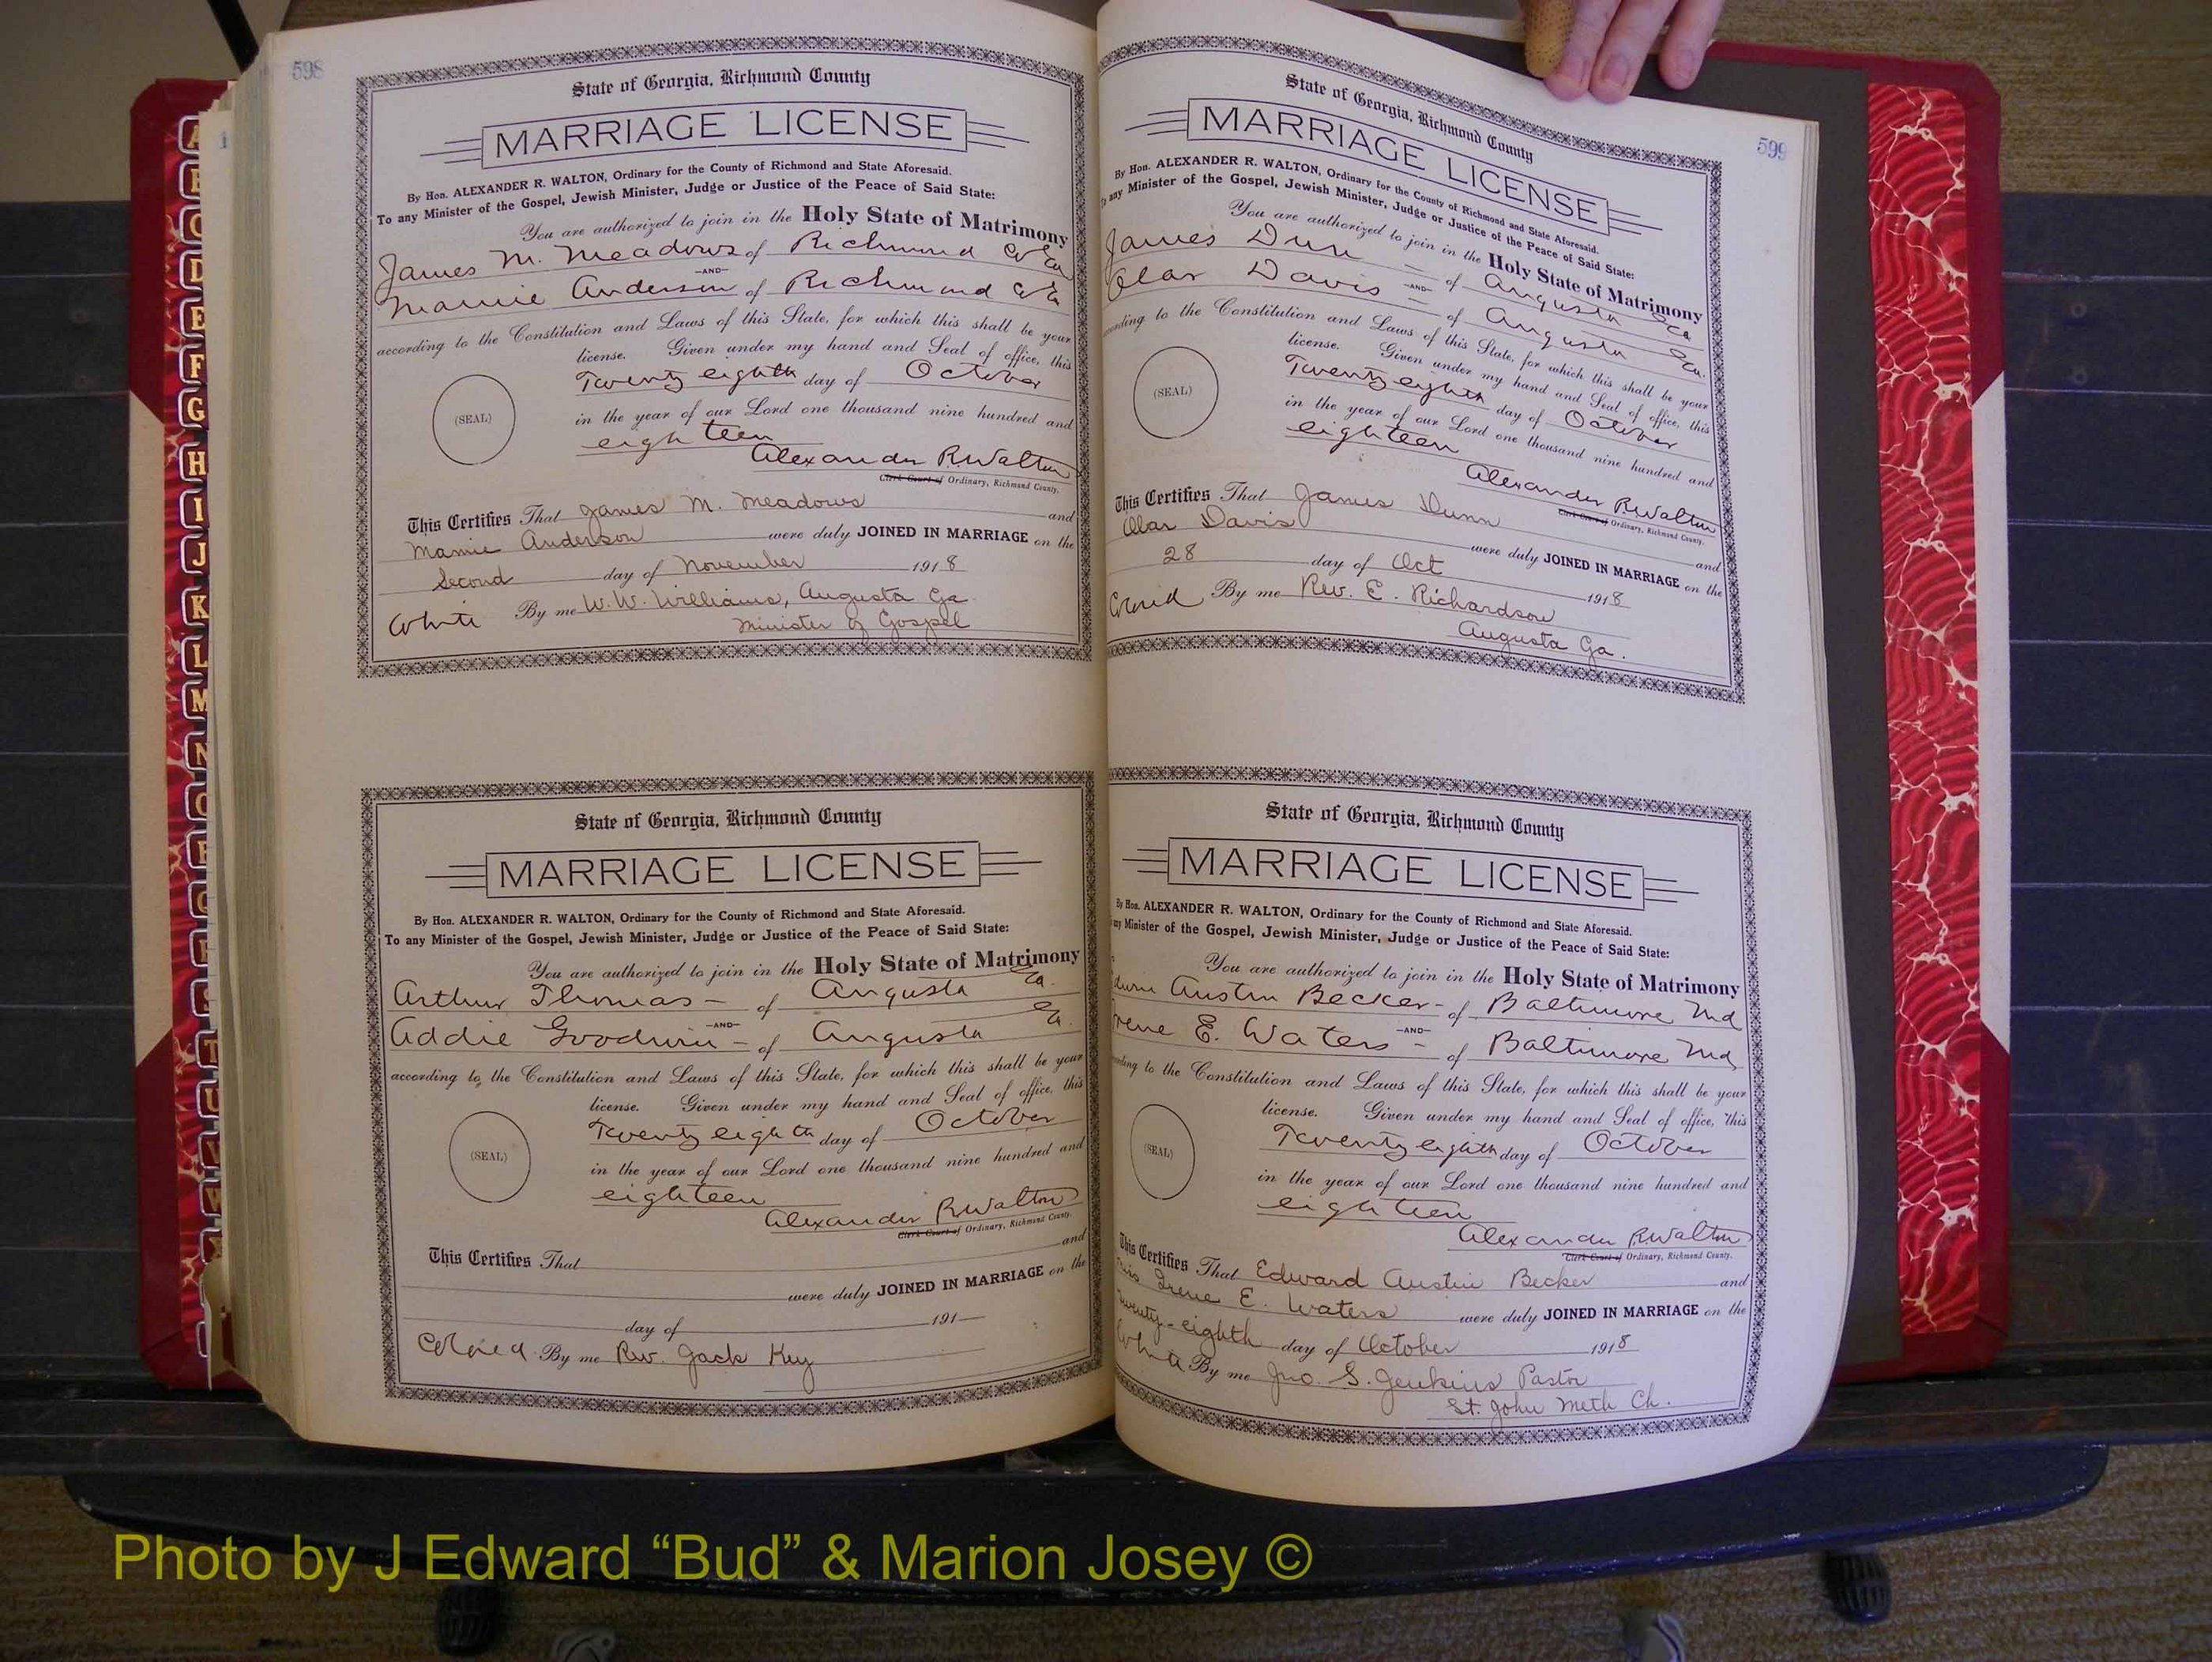 598
State of Georgia, Richmond County
MARRIAGE LICENSE
By Hon. ALEXANDER R. WALTON, Ordinary for the County of Richmond and State Aforesaid.
To any Minister of the Gospel, Jewish Minister, Judge or Justice of the Peace of Said State:
You are authorized to join in the Holy State of Matrimony
James M. Meadows of Richmond Co Ga
-AND-
Mamie Anderson of Richmond Co Ga
according to the Constitution and Laws of this State, for which this shall be your
license. Given under my hand and Seal of office, this
Twenty eighth day of October
(SEAL)
in the year of our Lord one thousand nine hundred and
eighteen
Alexander R Walton
Clerk Court of Ordinary, Richmond County.
This Certifies That James M. Meadows and
Mamie Anderson were duly JOINED IN MARRIAGE on the
Second day of November 1918
White By me W. W. Williams, Augusta Ga
Minister of Gospel
State of Georgia, Richmond County
MARRIAGE LICENSE
By Hon. ALEXANDER R. WALTON, Ordinary for the County of Richmond and State Aforesaid.
To any Minister of the Gospel, Jewish Minister, Judge or Justice of the Peace of Said State:
You are authorized to join in the Holy State of Matrimony
Arthur Thomas - of Augusta Ga.
-AND-
Addie Goodwin - of Augusta Ga.
according to the Constitution and Laws of this State, for which this shall be your
license. Given under my hand and Seal of office, this
Twenty eighth day of October
(SEAL)
in the year of our Lord one thousand nine hundred and
eighteen
Alexander R Walton
Clerk Court of Ordinary, Richmond County.
This Certifies That and
were duly JOINED IN MARRIAGE on the
day of 191
Colored By me Rev. Jack Key
599
State of Georgia, Richmond County
MARRIAGE LICENSE
By Hon. ALEXANDER R. WALTON, Ordinary for the County of Richmond and State Aforesaid.
any Minister of the Gospel, Jewish Minister, Judge or Justice of the Peace of Said State:
You are authorized to join in the Holy State of Matrimony
James Dunn - of Augusta Ga
-AND-
Olar Davis - of Augusta Ga.
according to the Constitution and Laws of this State, for which this shall be your
license. Given under my hand and Seal of office, this
Twenty eighth day of October
(SEAL)
in the year of our Lord one thousand nine hundred and
eighteen
Alexander R Walton
Clerk Court of Ordinary, Richmond County.
This Certifies That James Dunn and
Olar Davis were duly JOINED IN MARRIAGE on the
28 day of Oct 1918
Colored By me Rev. E. Richardson
Augusta Ga.
State of Georgia, Richmond County
MARRIAGE LICENSE
By Hon. ALEXANDER R. WALTON, Ordinary for the County of Richmond and State Aforesaid.
any Minister of the Gospel, Jewish Minister, Judge or Justice of the Peace of Said State:
You are authorized to join in the Holy State of Matrimony
Austin Becker - of Baltimore Md
-AND-
Irene E. Waters - of Baltimore Md
according to the Constitution and Laws of this State, for which this shall be your
license. Given under my hand and Seal of office, this
Twenty eighth day of October
(SEAL)
in the year of our Lord one thousand nine hundred and
eighteen
Alexander R Walton
Clerk Court of Ordinary, Richmond County.
This Certifies That Edward Austin Becker and
Miss Irene E. Waters were duly JOINED IN MARRIAGE on the
Twenty-eighth day of October 1918
White By me Jno. S. Jenkins Pastor
St. John Meth Ch.
Photo by J Edward “Bud” & Marion Josey ©